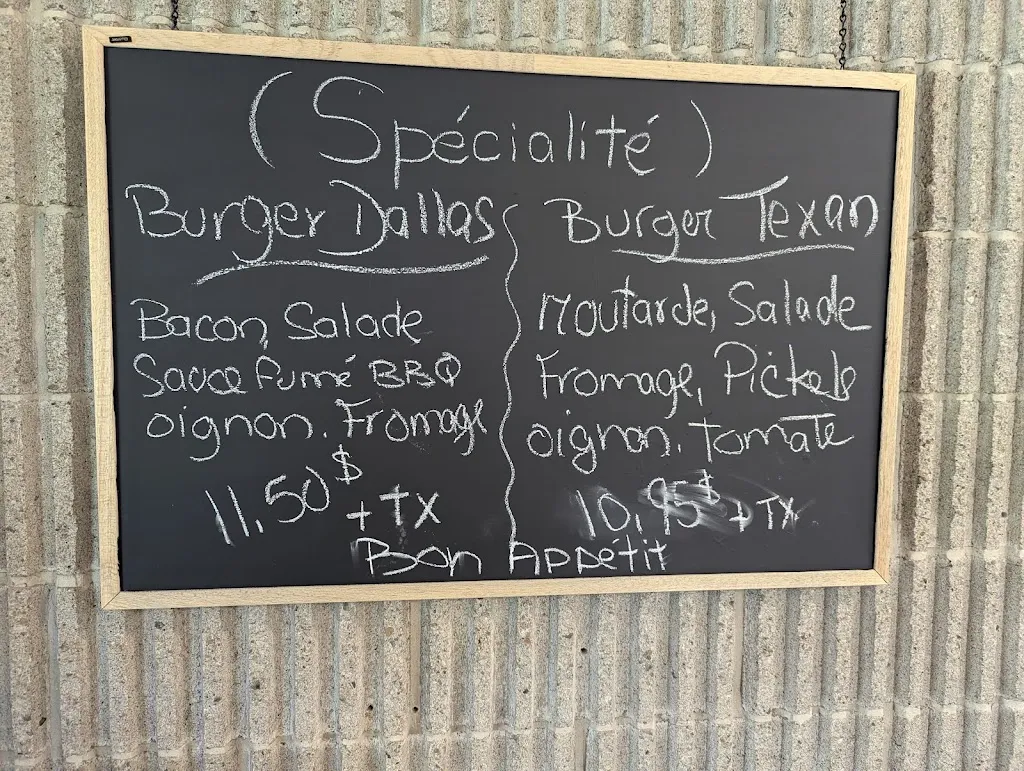 (Spécialité)
Burger Dallas
Bacon, Salade
Sauce fumé BBQ
oignon. Fromage
11,50$ + TX
Burger Texan
Moutarde, Salade
Fromage, Pickels
oignon. tomate
10,95$ + TX
Bon Appétit